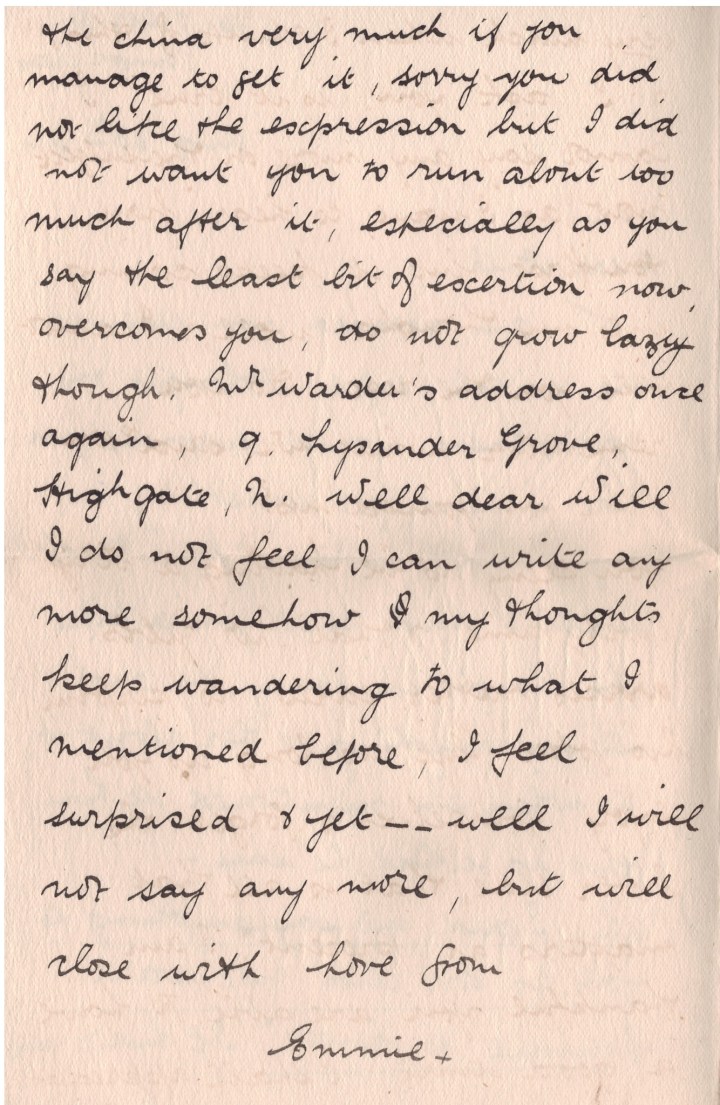 the china very much if you
manage to get it, sorry you did
not like the expression but I did
not want you to run about too
much after it, especially as you
say the least bit of exertion now,
overcomes you, do not grow lazy
though. Mr Warder's address once
again, 9. Lysander Grove,
Highgate, N. Well dear Will
I do not feel I can write any
more somehow & my thoughts
keep wandering to what I
mentioned before, I feel
surprised & yet -- well I will
not say any more, but will
close with love from
Emmie +